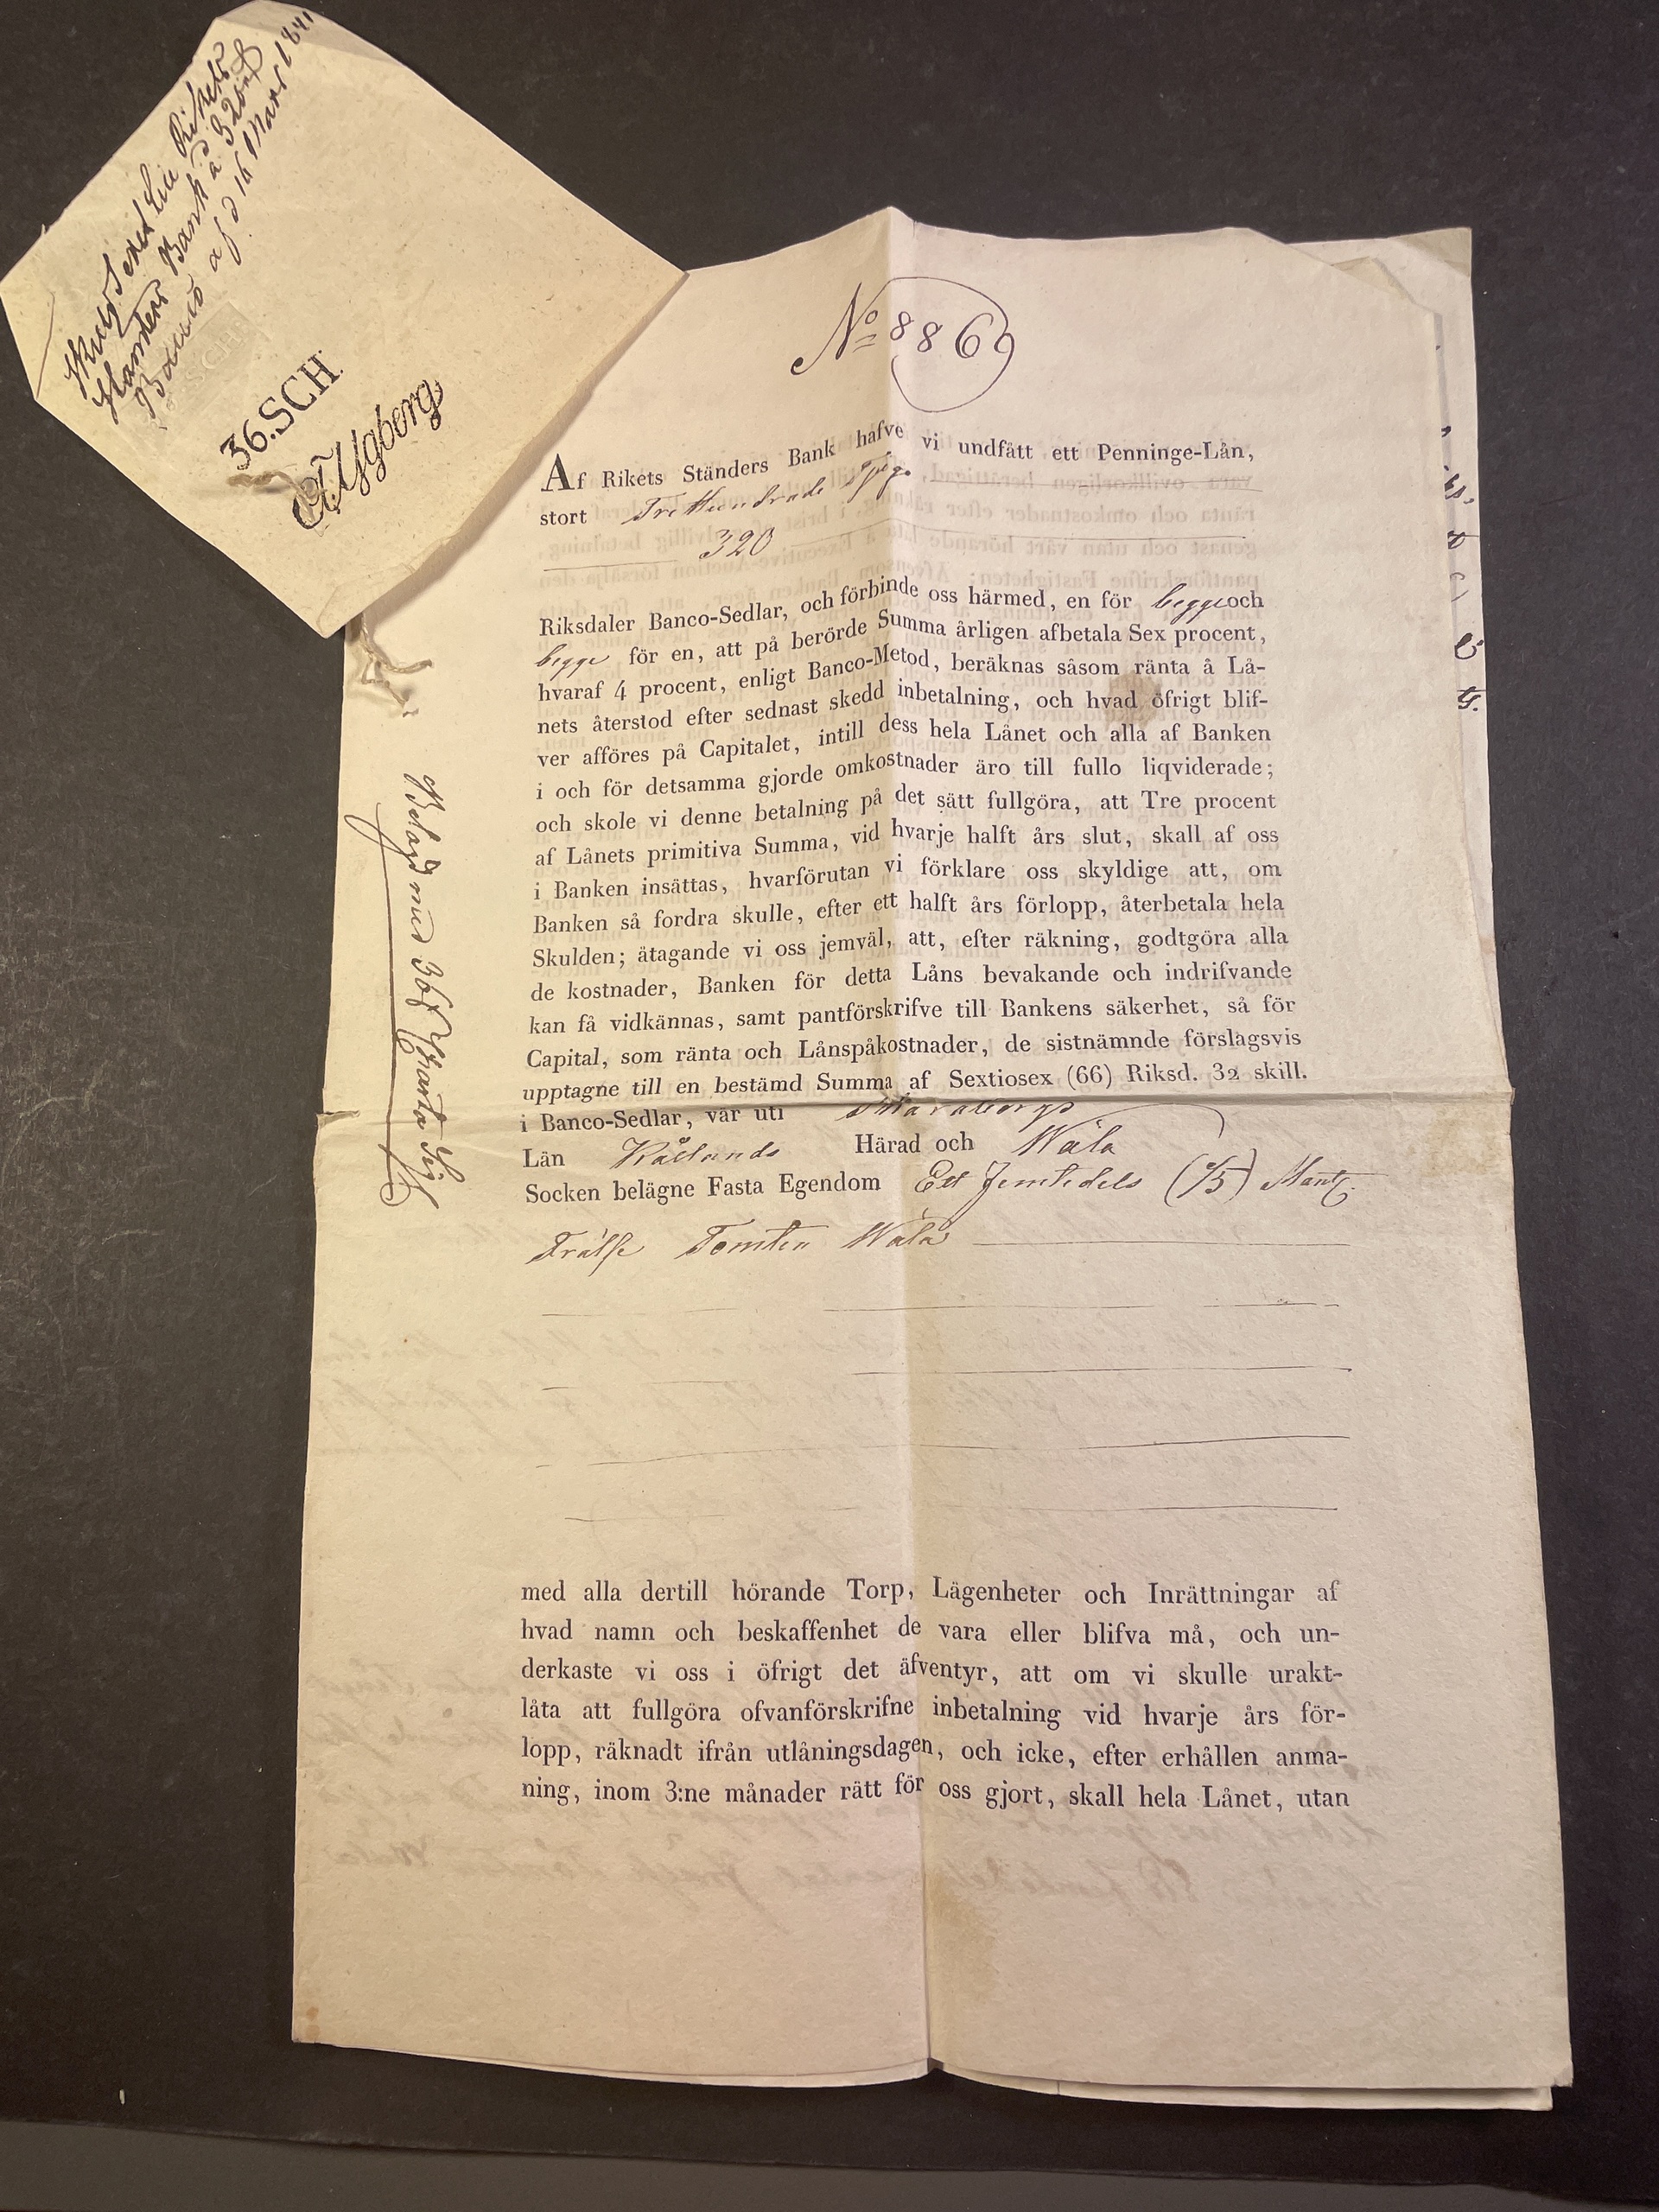 Ständers Bank á 320
Banco af d 16 Mars 1841
36.SCH.
Ygberg
No 8869
Af Rikets Ständers Bank hafve vi undfått ett Penninge-Lån,
stort Trehundrade tjugo
320
Riksdaler Banco-Sedlar, och förbinde oss härmed, en för begge och
begge för en, att på berörde Summa årligen afbetala Sex procent,
hvaraf 4 procent, enligt Banco-Metod, beräknas såsom ränta å Lå-
nets återstod efter sednast skedd inbetalning, och hvad öfrigt blif-
ver afföres på Capitalet, intill dess hela Lånet och alla af Banken
i och för detsamma gjorde omkostnader äro till fullo liqviderade;
och skole vi denne betalning på det sätt fullgöra, att Tre procent
af Lånets primitiva Summa, vid hvarje halft års slut, skall af oss
i Banken insättas, hvarförutan vi förklare oss skyldige att, om
Banken så fordra skulle, efter ett halft års förlopp, återbetala hela
Skulden; åtagande vi oss jemväl, att, efter räkning, godtgöra alla
de kostnader, Banken för detta Låns bevakande och indrifvande
kan få vidkännas, samt pantförskrifve till Bankens säkerhet, så för
Capital, som ränta och Lånspåkostnader, de sistnämnde förslagsvis
upptagne till en bestämd Summa af Sextiosex (66) Riksd. 32 skill.
i Banco-Sedlar, vår uti Skaraborgs
Län Kållands Härad och Wäla
Socken belägne Fasta Egendom Ett femtedels (1/5) Mantl.
Frälse Tomten Wäla
med alla dertill hörande Torp, Lägenheter och Inrättningar af
hvad namn och beskaffenhet de vara eller blifva må, och un-
derkaste vi oss i öfrigt det äfventyr, att om vi skulle urakt-
låta att fullgöra ofvanförskrifne inbetalning vid hvarje års för-
lopp, räknadt ifrån utlåningsdagen, och icke, efter erhållen anma-
ning, inom 3:ne månader rätt för oss gjort, skall hela Lånet, utan
Belagd med 36 s Charta Sig